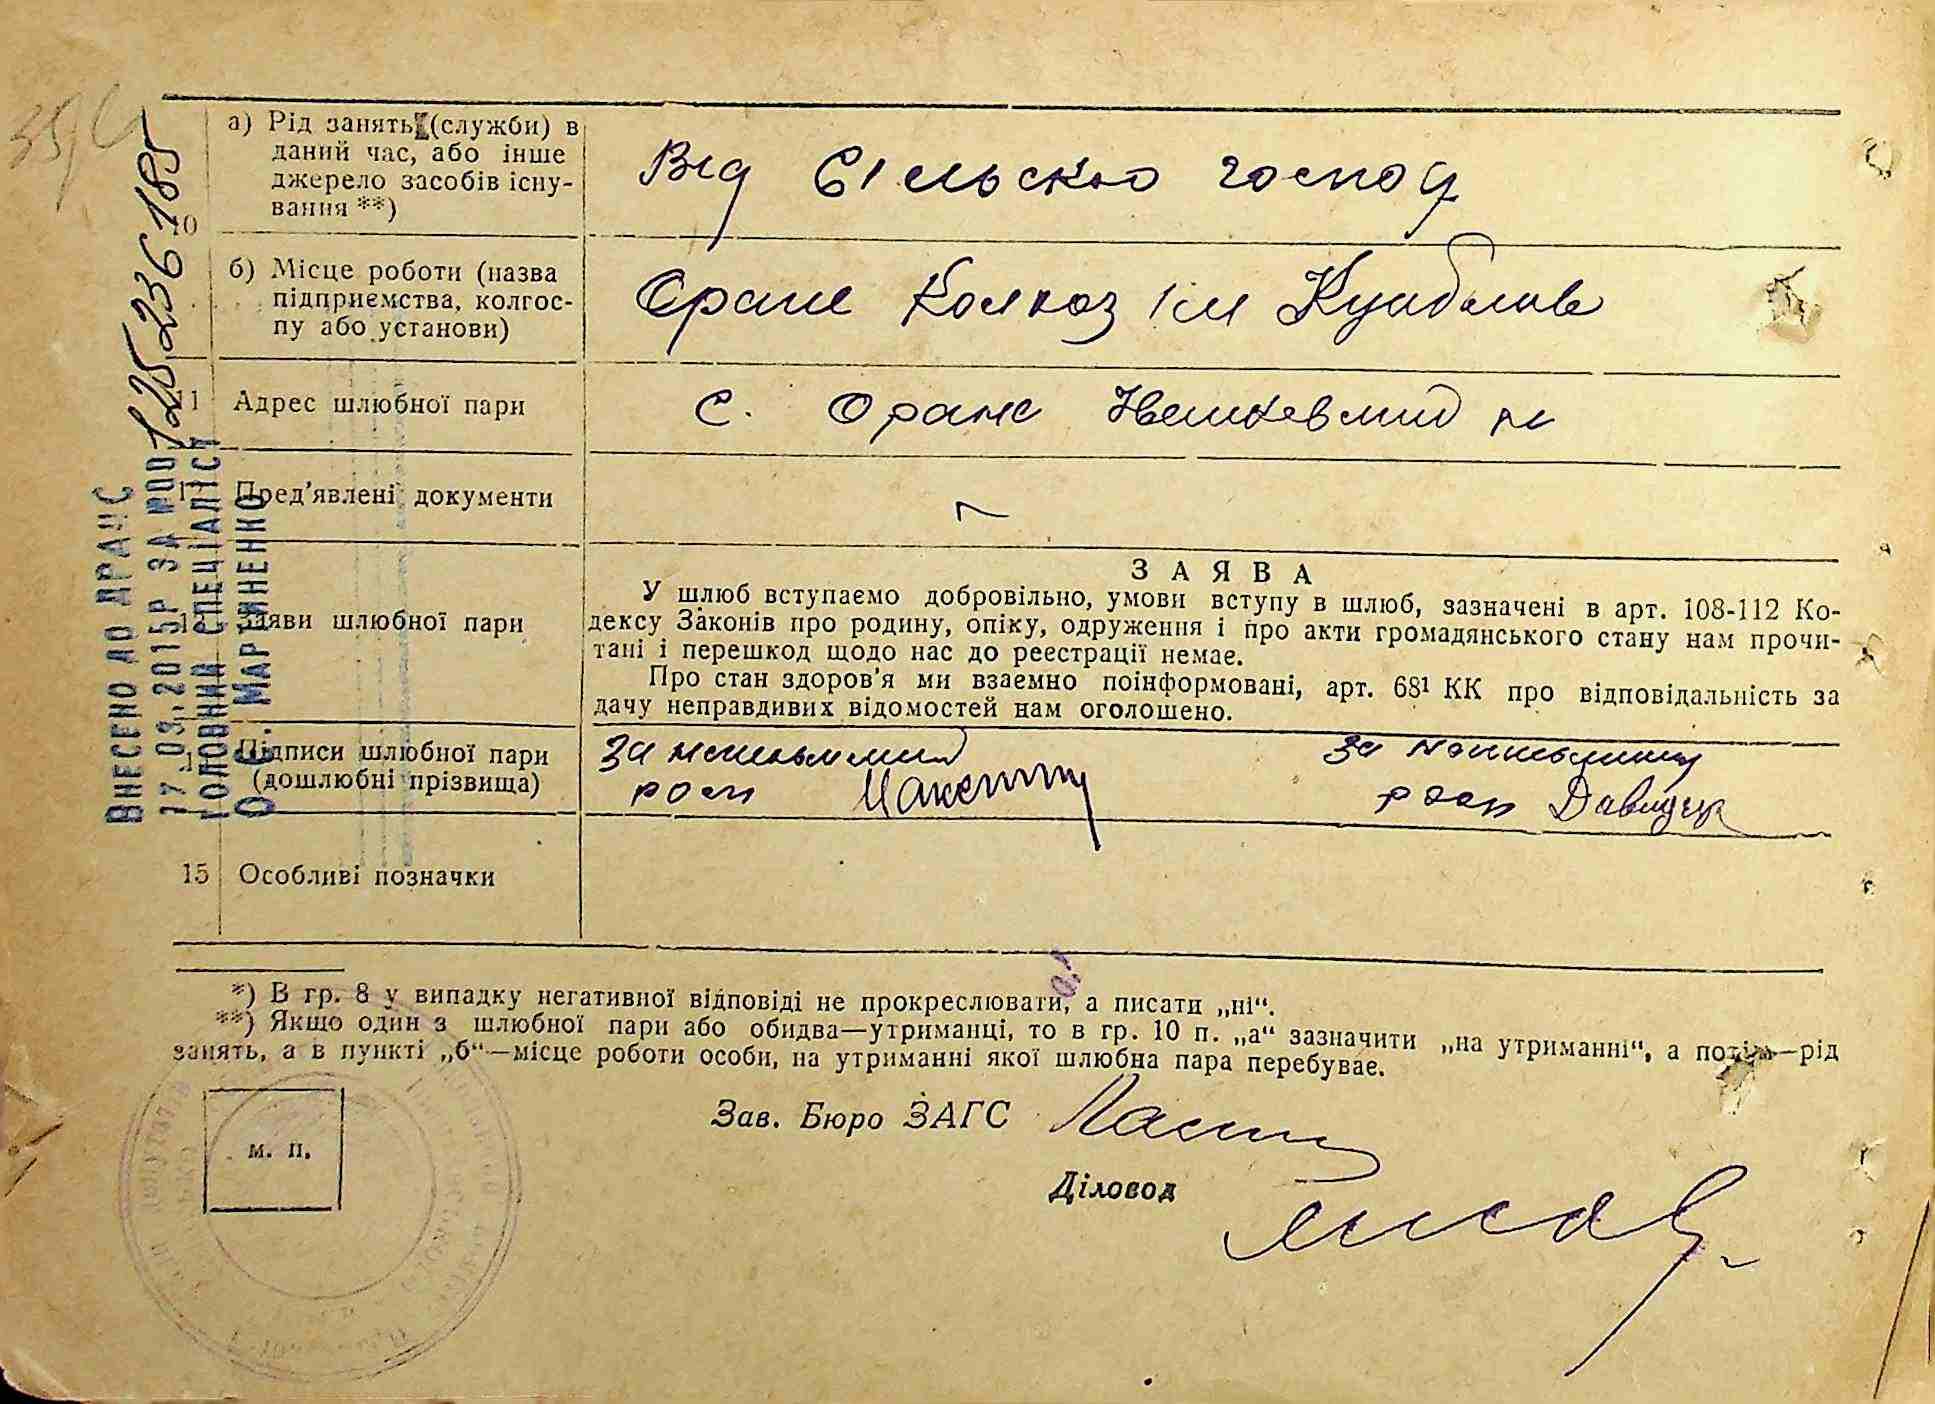 а) Рід занять (служби) в
даний час, або інше
джерело засобів існу-
вання **)
10
Від Сільского господ
б) Місце роботи (назва
підприємства, колгос-
пу або установи)
Оране Колхоз ім
11 Адрес шлюбної пари
с. Оране
Пред'явлені документи
Заяви шлюбної пари
ЗАЯВА
У шлюб вступаємо добровільно, умови вступу в шлюб, зазначені в арт. 108-112 Ко-
дексу Законів про родину, опіку, одруження і про акти громадянського стану нам прочи-
тані і перешкод щодо нас до реєстрації немає.
Про стан здоров'я ми взаємно поінформовані, арт. 68¹ КК про відповідальність за
дачу неправдивих відомостей нам оголошено.
Підписи шлюбної пари
(дошлюбні прізвища)
За
росп
За
росп Давидчук
15 Особливі позначки
*) В гр. 8 у випадку негативної відповіді не прокреслювати, а писати „ні“.
**) Якщо один з шлюбної пари або обидва—утриманці, то в гр. 10 п. „а“ зазначити „на утриманні“, а потім—рід
занять, а в пункті „б“—місце роботи особи, на утриманні якої шлюбна пара перебуває.
м. п.
Зав. Бюро ЗАГС
Діловод
ВНЕСЕНО ДО ДРАЦС
17.03.2015Р ЗА №00125236185
ГОЛОВНИЙ СПЕЦІАЛІСТ
О.С. МАРТИНЕНКО